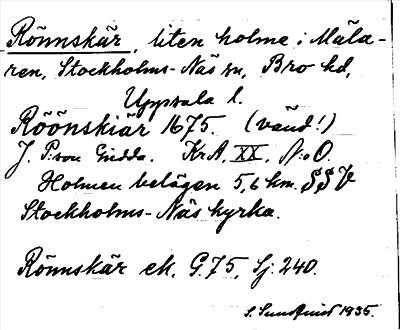 Rönnskär, liten holme i Mäla-
ren, Stockholms-Näs sn, Bro hd,
Uppsala l.
Röönskiär 1675. (vänd!)
J. P:son Gedda. Kr.A. XX, N:o O.
Holmen belägen 5,6 km. SSV
Stockholms-Näs kyrka.
Rönnskär ek. G. 75, Sj. 240.
S. Sundquist 1935.